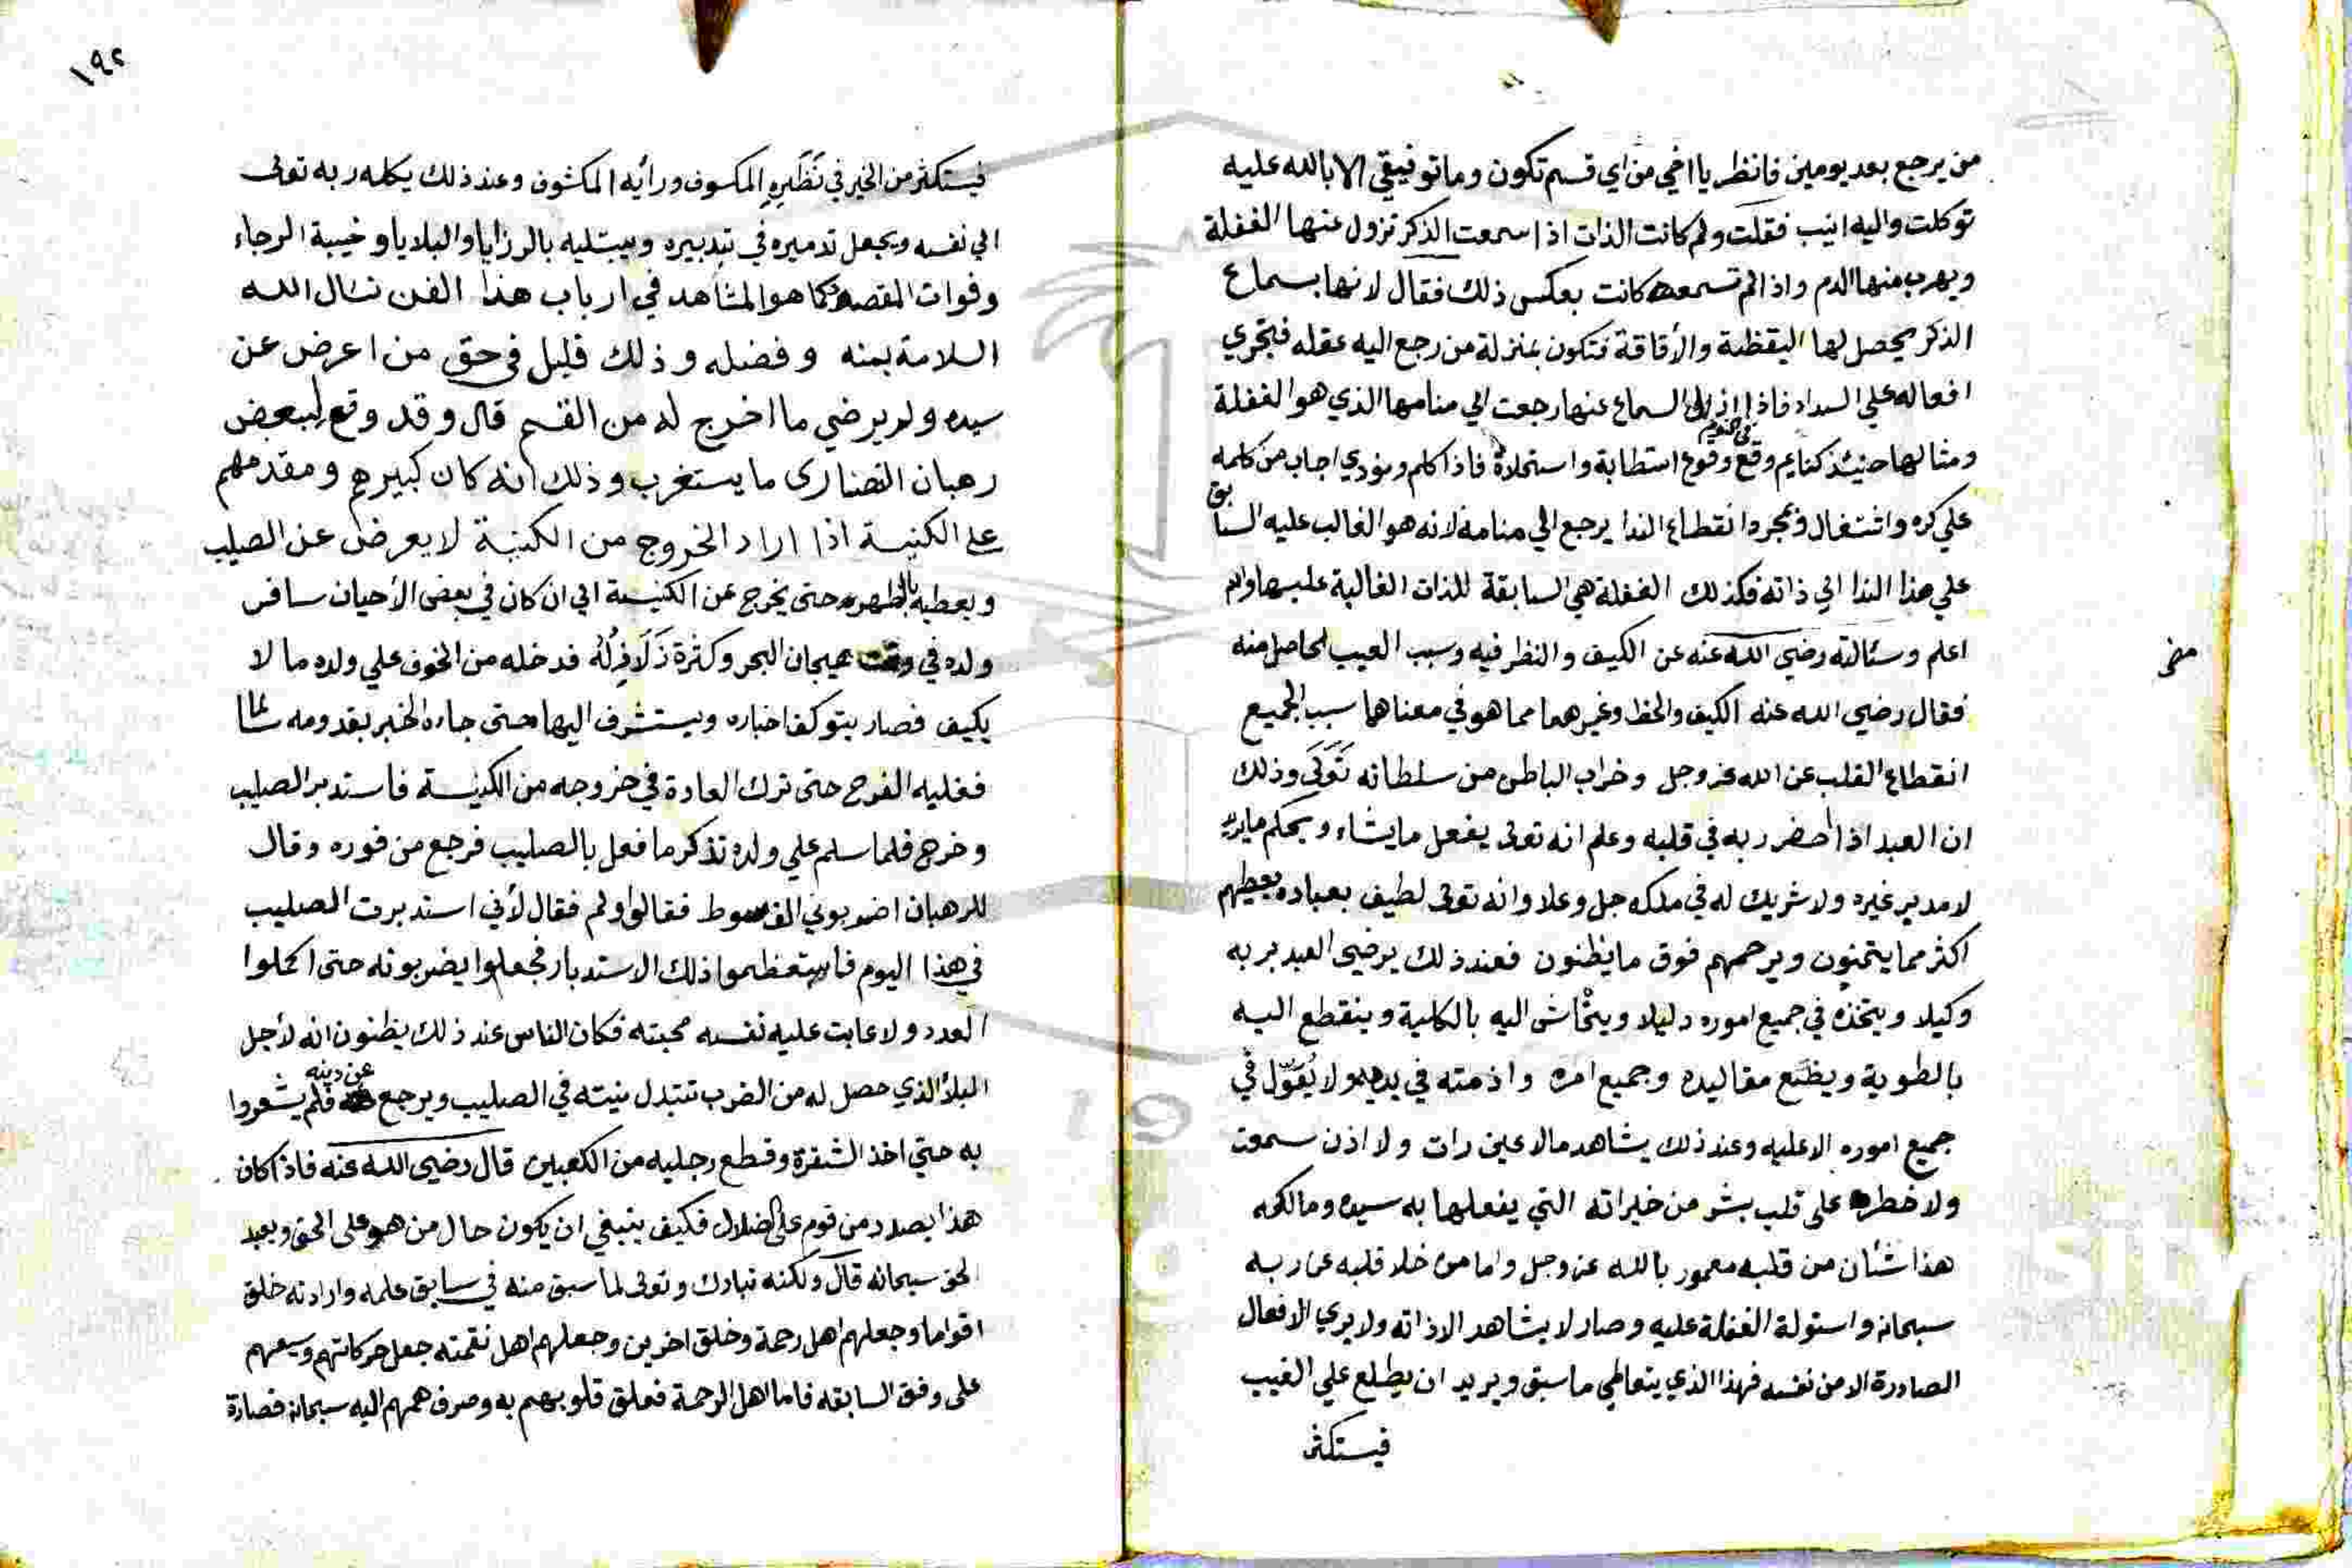 من يرجع بعد يومين فانظر يا اخي من اي قسم تكون وما توفيقي الا بالله عليه
توكلت واليه انيب فقلت ولم كانت الذات اذا سمعت الذكر تزول عنها الغفلة
ويهرب منها الدم واذا لم تسمعه كانت بعكس ذلك فقال لانها بسماع
الذكر يحصل لها اليقظة والأفاقة فتكون بمنزلة من رجع اليه عقله فتجري
افعاله علي السداد فاذا السماع عنها رجعت الي منامها الذي هو الغفلة
ومثالها حينئذ كنايم وقع في النوم وقوع استطابة واستحلاة فاذا كلم ونودي اجاب من كلمه
علي كره واشتغال وبمجرد انقطاع الندا يرجع الي منامه لانه هو الغالب عليه السابق
علي هذا الندا الي ذاته فكذلك الغفلة هي السابقة للذات الغالبة عليها والله
اعلم وسئالته رضي الله عنه عن الكيف والنظر فيه وسبب العيب الحاصل منه
فقال رضي الله عنه الكيف والخط وغيرهما مما هو في معناهما سبب الجميع
انقطاع القلب عن الله عز وجل وخراب الباطن من سلطانه تعالى وذلك
ان العبد اذا احضر ربه في قلبه وعلم انه تعالى يفعل ما يشاء ويحكم ما يريد
لا مدبر غيره ولا شريك له في ملكه جل وعلا وانه تعالى لطيف بعباده يعطيهم
اكثر مما يتمنون ويرحمهم فوق ما يظنون فعند ذلك يرضى العبد بربه
وكيلا ويتخذه في جميع اموره دليلا وينحاش اليه بالكلية وينقطع اليه
بالطوية ويضع مقاليده وجميع امره وازمته في يده ولا يُعَوّل في
جميع اموره الا عليه وعند ذلك يشاهد مالا عين رات ولا اذن سمعت
ولا خطر على قلب بشر من خيراته التي يفعلها به سيده ومالكه
هذا شئان من قلبه معمور بالله عز وجل واما من خلا قلبه عن ربه
سبحانه واستولة الغفلة عليه وصار لا يشاهد الا ذاته ولا يري الافعال
الصادرة الا من نفسه فهذا الذي يتعاطي ما سبق ويريد ان يطلع علي الغيب
فيستكثر
١٩٢
فيستكثر من الخير في نَظَرِهِ المكسوف ورأيه المكشوف وعند ذلك يكله ربه تعالى
الي نفسه ويجعل تدميره في تدبيره ويبتليه بالرزايا والبلايا وخيبة الرجاء
وفوات المقصود كما هو المشاهد في ارباب هذا الفن نسال الله
السلامة بمنه وفضله وذلك قليل في حق من اعرض عن
سيده ولم يرضي ما اخرج له من القسم قال وقد وقع لبعض
رهبان النصارى ما يستغرب وذلك انه كان كبيرهم ومقدمهم
على الكنيسة اذا اراد الخروج من الكنيسة لا يعرض عن الصليب
ويعطيه بالظهر حتى يخرج عن الكنيسة الي ان كان في بعض الأحيان سافر
ولده في وقت هيجان البحر وكثرة زَلَازِلُهُ فدخله من الخوف علي ولده ما لا
يكيف فصار يتوكف اخباره ويستشرف اليها حتى جاءه الخبر بقدومه سالما
فغلبه الفرح حتى ترك العادة في خروجه من الكنيسة فاستدبر الصليب
وخرج فلما سلم علي ولده تذكر ما فعل بالصليب فرجع من فوره وقال
للرهبان اضربوني الف سوط فقالوا ولم فقال لأني استدبرت الصليب
في هذا اليوم فاستعظموا ذلك الاستدبار فجعلوا يضربونه حتى اكملوا
العدد ولا عابت عليه نفسه محبته فكان الناس عند ذلك يظنون انه لأجل
البلأ الذي حصل له من الضرب تتبدل نيته في الصليب ويرجع عن دينه فلم يشعروا
به حتي اخذ الشفرة وقطع رجليه من الكعبين قال رضي الله عنه فاذا كان
هذا يصدر من قوم على الضلال فكيف ينبغي ان يكون حال من هو على الحق ويعبد
الحق سبحانه قال ولكنه تبارك وتعالى لما سبق منه في سابق علمه وارادته خلق
اقواما وجعلهم اهل رحمة وخلق اخرين وجعلهم اهل نقمته جعل حركاتهم وسعيهم
على وفق السابقه فاما اهل الرحمة فعلق قلوبهم به وصرف هممهم اليه سبحانه فصارة